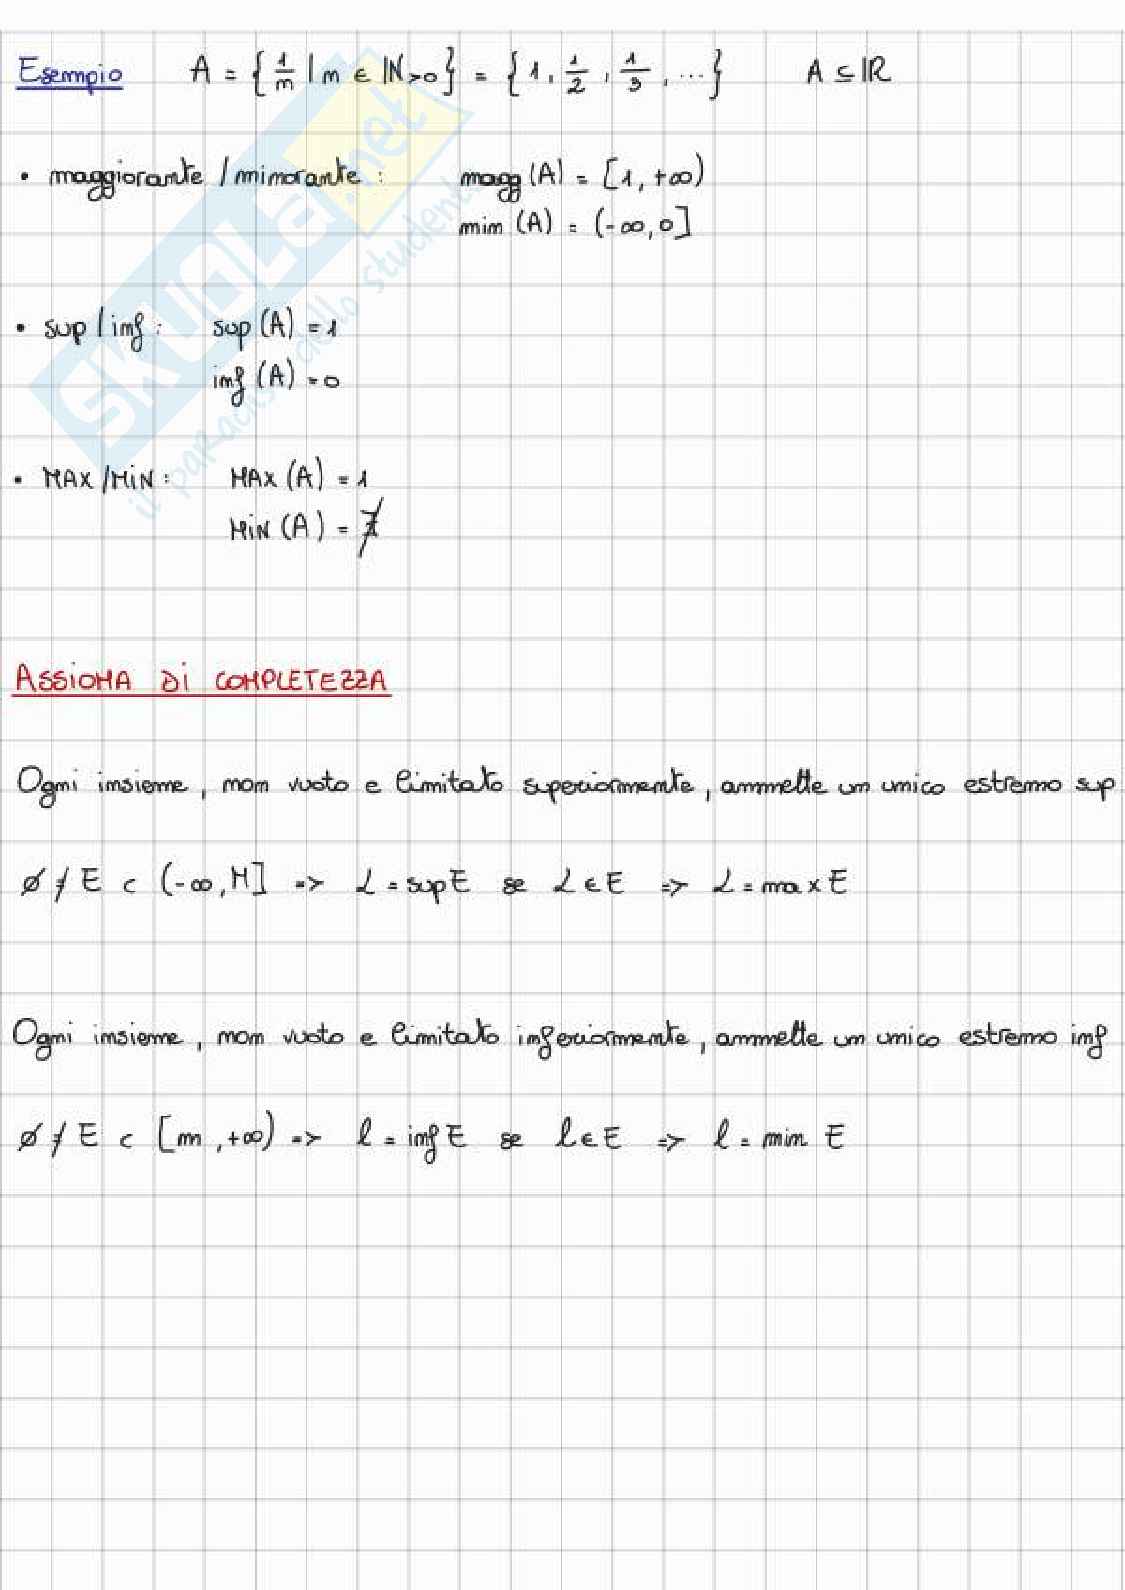 Esempio A = { 1/n | n ∈ ℕ>0 } = { 1, 1/2, 1/3, ... } A ⊆ ℝ
• maggiorante / minorante : magg (A) = [1, +∞)
min (A) = (-∞, 0]
• sup / inf : sup (A) = 1
inf (A) = 0
• MAX / MiN : MAX (A) = 1
MiN (A) = ∄
ASSiOMA Di COMPLETEZZA
Ogni insieme, non vuoto e limitato superiormente, ammette un unico estremo sup
∅ ≠ E ⊂ (-∞, M] => L = sup E se L ∈ E => L = max E
Ogni insieme, non vuoto e limitato inferiormente, ammette un unico estremo inf
∅ ≠ E ⊂ [m, +∞) => l = inf E se l ∈ E => l = min E
SKUOLA.net
il paradiso dello studente